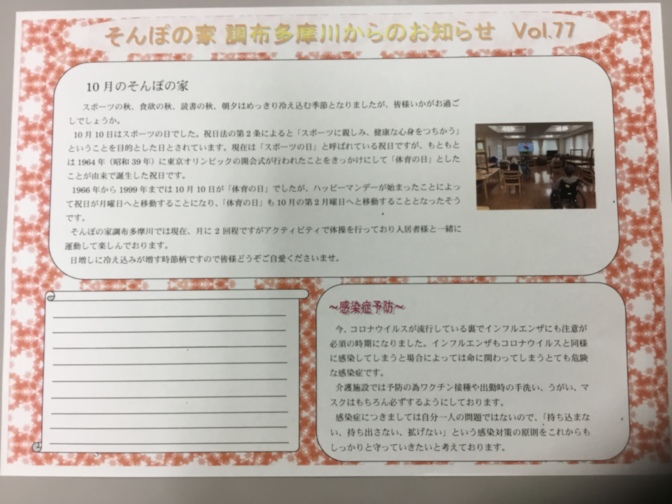 そんぽの家 調布多摩川からのお知らせ Vol.77
10月のそんぽの家
スポーツの秋、食欲の秋、読書の秋、朝夕はめっきり冷え込む季節となりましたが、皆様いかがお過ご
しでしょうか。
10月10日はスポーツの日でした。祝日法の第2条によると「スポーツに親しみ、健康な心身をつちかう」
ということを目的とした日とされています。現在は「スポーツの日」と呼ばれている祝日ですが、もともと
は1964年（昭和39年）に東京オリンピックの開会式が行われたことをきっかけにして「体育の日」とした
ことが由来で誕生した祝日です。
1966年から1999年までは10月10日が「体育の日」でしたが、ハッピーマンデーが始まったことによっ
て祝日が月曜日へと移動することになり、「体育の日」も10月の第2月曜日へと移動することとなったそう
です。
そんぽの家調布多摩川では現在、月に2回程ですがアクティビティで体操を行っており入居者様と一緒に
運動して楽しんでおります。
日増しに冷え込みが増す時節柄ですので皆様どうぞご自愛くださいませ。
～感染症予防～
今、コロナウイルスが流行している裏でインフルエンザにも注意が
必須の時期になりました。インフルエンザもコロナウイルスと同様
に感染してしまうと場合によっては命に関わってしまうとても危険
な感染症です。
介護施設では予防の為ワクチン接種や出勤時の手洗い、うがい、マ
スクはもちろん必ずするようにしております。
感染症につきましては自分一人の問題ではないので、「持ち込まな
い、持ち出さない、拡げない」という感染対策の原則をこれからも
しっかりと守っていきたいと考えております。